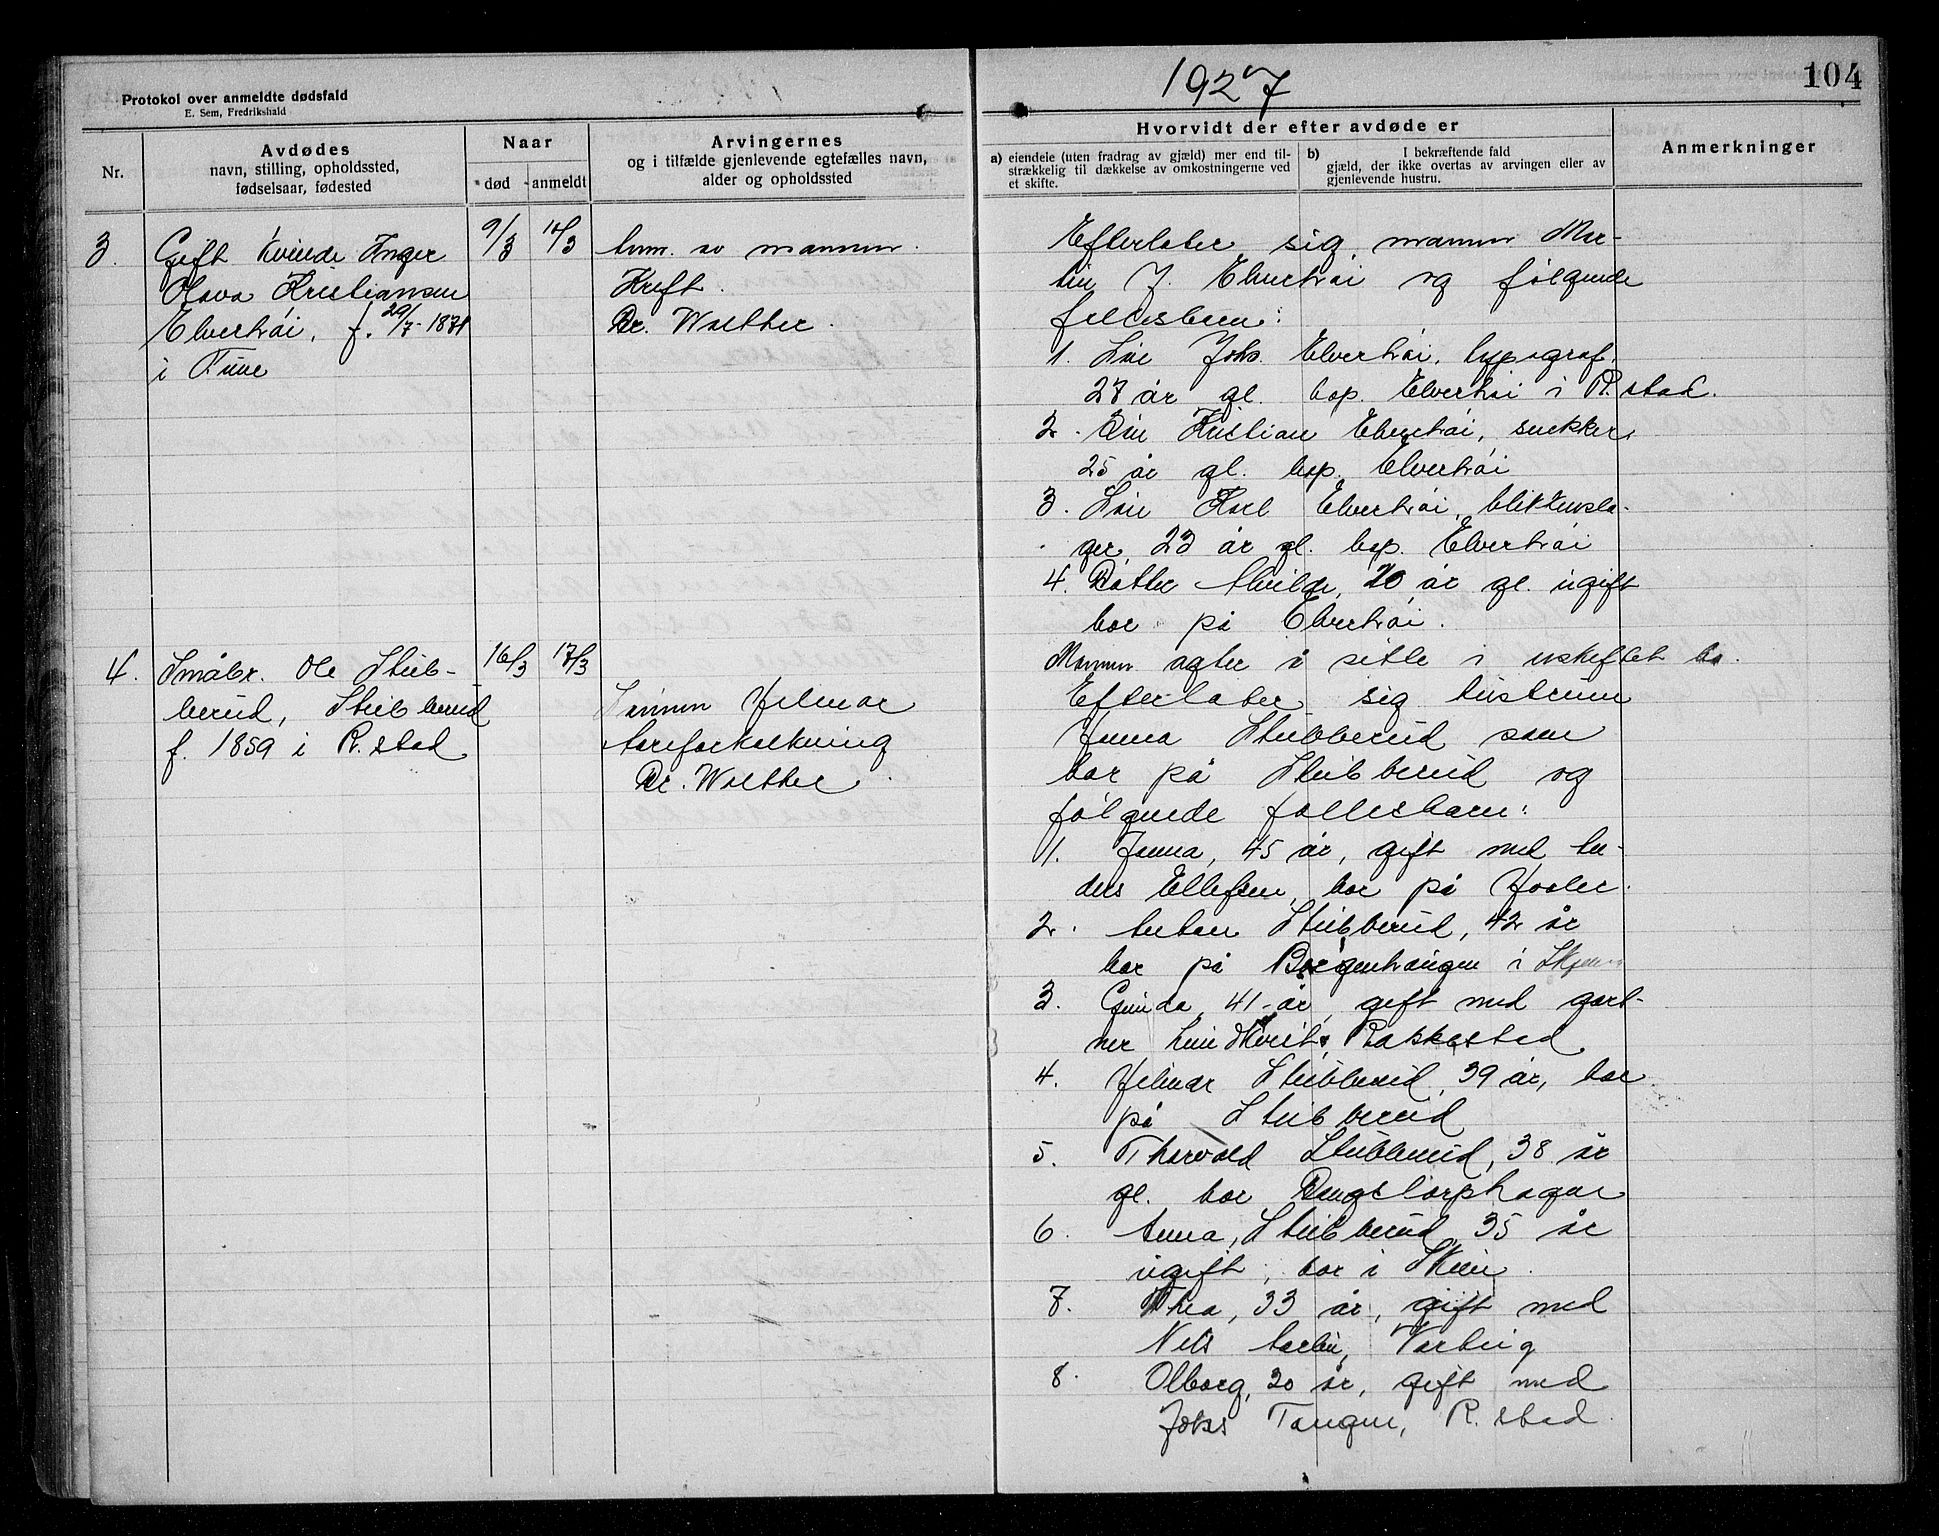 Protokol over anmeldte dødsfald
E. Sem, Fredrikshald
1927
104
Nr.
Avdødes
navn, stilling, opholdssted,
fødselsaar, fødested
Naar
død
anmeldt
Arvingernes
og i tilfælde gjenlevende egtefælles navn,
alder og opholdssted
Hvorvidt der efter avdøde er
a) eiendele (uten fradrag av gjæld) mer end til-
strækkelig til dækkelse av omkostningerne ved
et skifte.
b) I bekræftende fald
gjæld, der ikke overtas av arvingen eller av
gjenlevende hustru.
Anmerkninger
3.
Gift kvinde Inger
Olava Kristiansen
Elverhøi, f. 29/7-1871
i Tune
9/3
14/3
Anm. av mannen.
Kreft.
Dr. Walther.
Efterlater sig mannen Mar-
tin J. Elverhøi og følgende
fellesbarn:
1. Søn Joh. Elverhøi, typograf,
27 år gl. bop. Elverhøi i R.stad.
2. Søn Kristian Elverhøi, snekker,
25 år gl. bop. Elverhøi
3. Søn Karl Elverhøi, blikkensla-
ger, 23 år gl. bop. Elverhøi
4. Datter 20 år gl. ugift
bor på Elverhøi.
Mannen agter å sitte i uskiftet bo.
4.
Småbr. Ole Stub-
berud, Stubberud
f. 1859 i R.stad
16/3
17/3
Sønnen Hilmar
Åreforkalkning
Dr. Walther.
Efterlater sig hustruen
Jenna Stubberud som
bor på Stubberud og
følgende fellesbarn:
1. Jenna, 45 år, gift med An-
ders Ellefsen, bor på
2. Anton Stubberud, 42 år
bor på Borgenhaugen i
3. Gunda, 41 år, gift med gart-
ner Rakkestad
4. Hilmar Stubberud, 39 år, bor
på Stubberud
5. Thorvald Stubberud, 38 år
gl. bor
6. Anna Stubberud, 35 år
ugift, bor i Skien.
7. Thea, 33 år, gift med
Nils Varteig
8. Olborg, 30 år, gift med
Johs Tangen, R.stad.